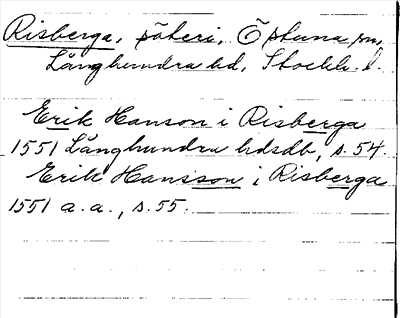 Risberga, säteri, Ö stuna sn,
Långhundra hd, Stockh. l.
Erik Hanson i Risberga
1551 Långhundra hdsdb, s. 54.
Erik Hansson i Risberga
1551 a.a., s. 55.